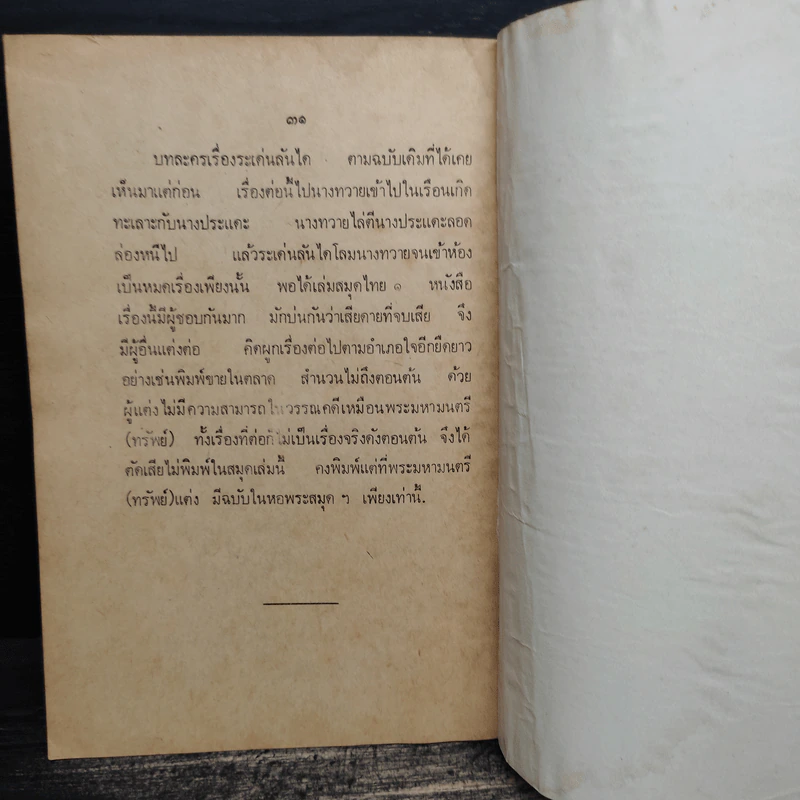 ๓๑
บทละครเรื่องระเด่นลันได ตามฉบับเดิมที่ได้เคย
เห็นมาแต่ก่อน เรื่องต่อนี้ไปนางทวายเข้าไปในเรือนเกิด
ทะเลาะกับนางประแดะ นางทวายไล่ตีนางประแดะลอด
ล่องหนีไป แล้วระเด่นลันไดโลมนางทวายจนเข้าห้อง
เป็นหมดเรื่องเพียงนั้น พอได้เล่มสมุดไทย ๑ หนังสือ
เรื่องนี้มีผู้ชอบกันมาก มักบ่นกันว่าเสียดายที่จบเสีย จึง
มีผู้อื่นแต่งต่อ คิดผูกเรื่องต่อไปตามอำเภอใจอีกยืดยาว
อย่างเช่นพิมพ์ขายในตลาด สำนวนไม่ถึงตอนต้น ด้วย
ผู้แต่งไม่มีความสามารถในวรรณคดีเหมือนพระมหามนตรี
(ทรัพย์) ทั้งเรื่องที่ต่อก็ไม่เป็นเรื่องจริงดังตอนต้น จึงได้
ตัดเสียไม่พิมพ์ในสมุดเล่มนี้ คงพิมพ์แต่ที่พระมหามนตรี
(ทรัพย์)แต่ง มีฉบับในหอพระสมุด ฯ เพียงเท่านี้.